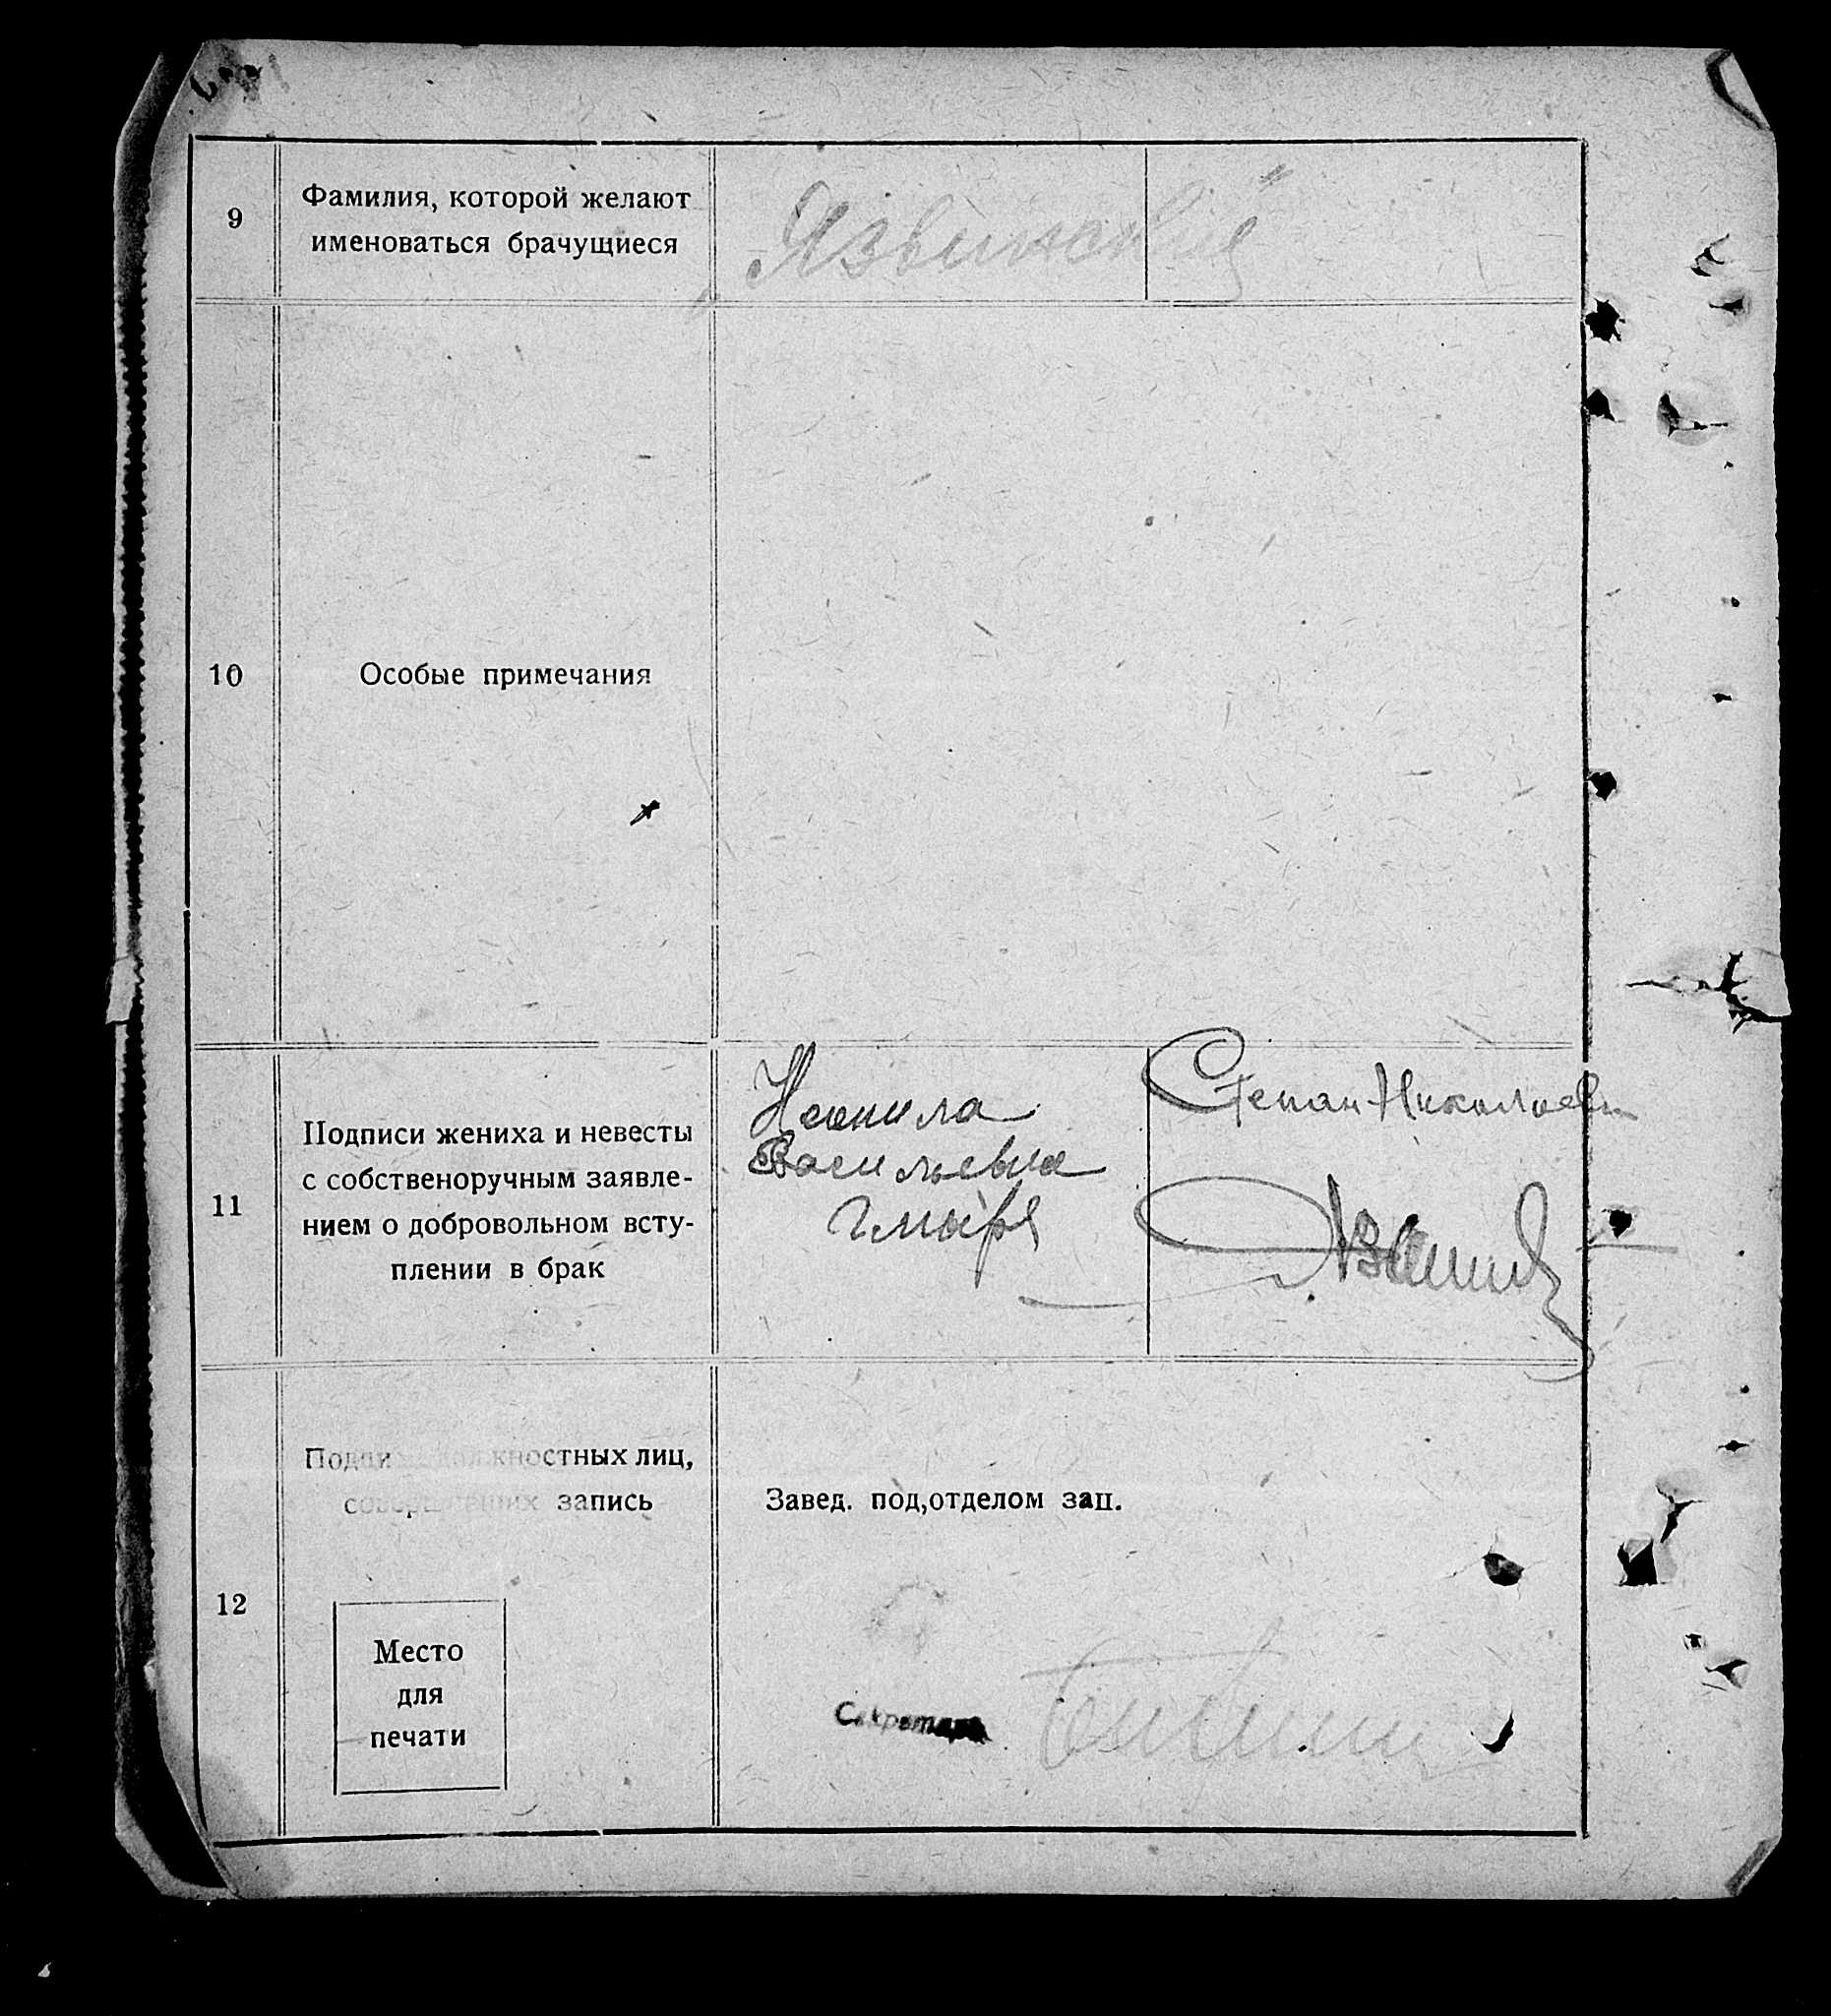 9
Фамилия, которой желают
именоваться брачущиеся
Язвинский
10
Особые примечания
11
Подписи жениха и невесты
с собственоручным заявле-
нием о добровольном всту-
плении в брак
Неонила
Васильевна
Гмыря
Степан Николаеви
12
Подписи должностных лиц,
совершивших запись
Завед. под,отделом зап.
Место
для
печати
Секретарь